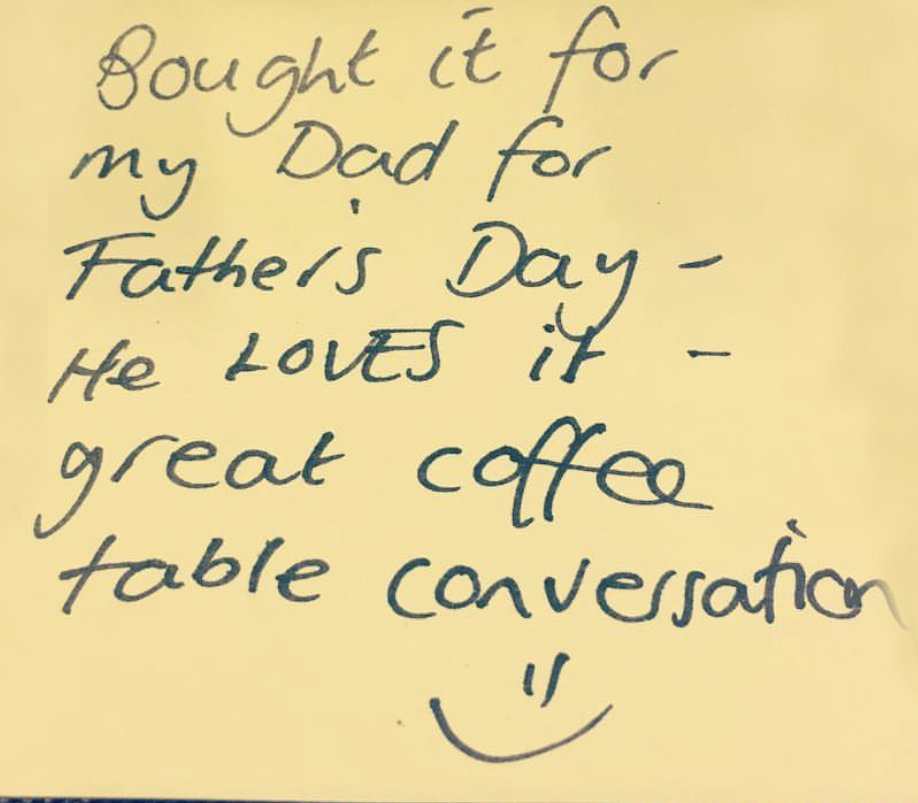 Bought it for
my Dad for
Father's Day -
He LOVES it -
great coffee
table conversation